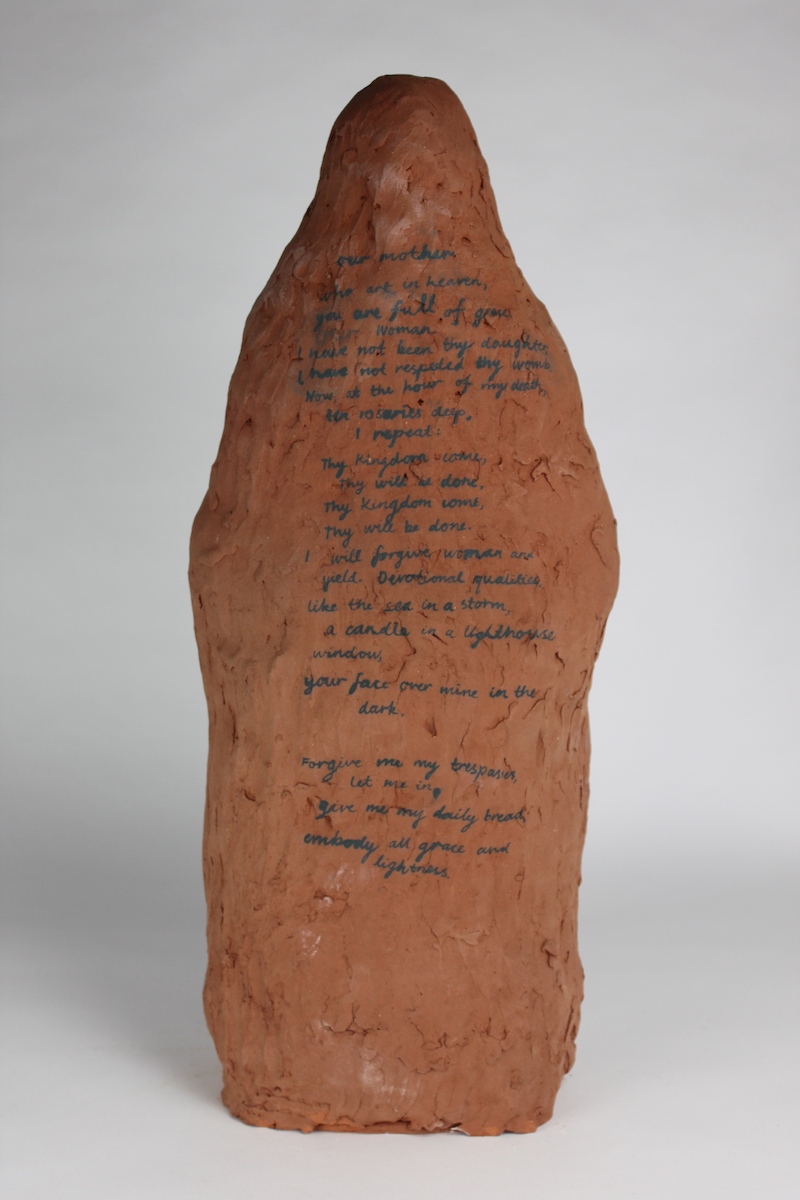 our mother
who art in heaven,
you are full of grace
Woman
I have not been thy daughter
I have not respected thy womb
Now, at the hour of my death,
ten rosaries deep,
I repeat:
Thy Kingdom come,
Thy will be done,
Thy Kingdom come,
Thy will be done.
I will forgive, woman and
yield. Devotional qualities
like the sea in a storm,
a candle in a lighthouse
window,
your face over mine in the
dark.
Forgive me my trespasses,
let me in,
give me my daily bread,
embody all grace and
lightness.